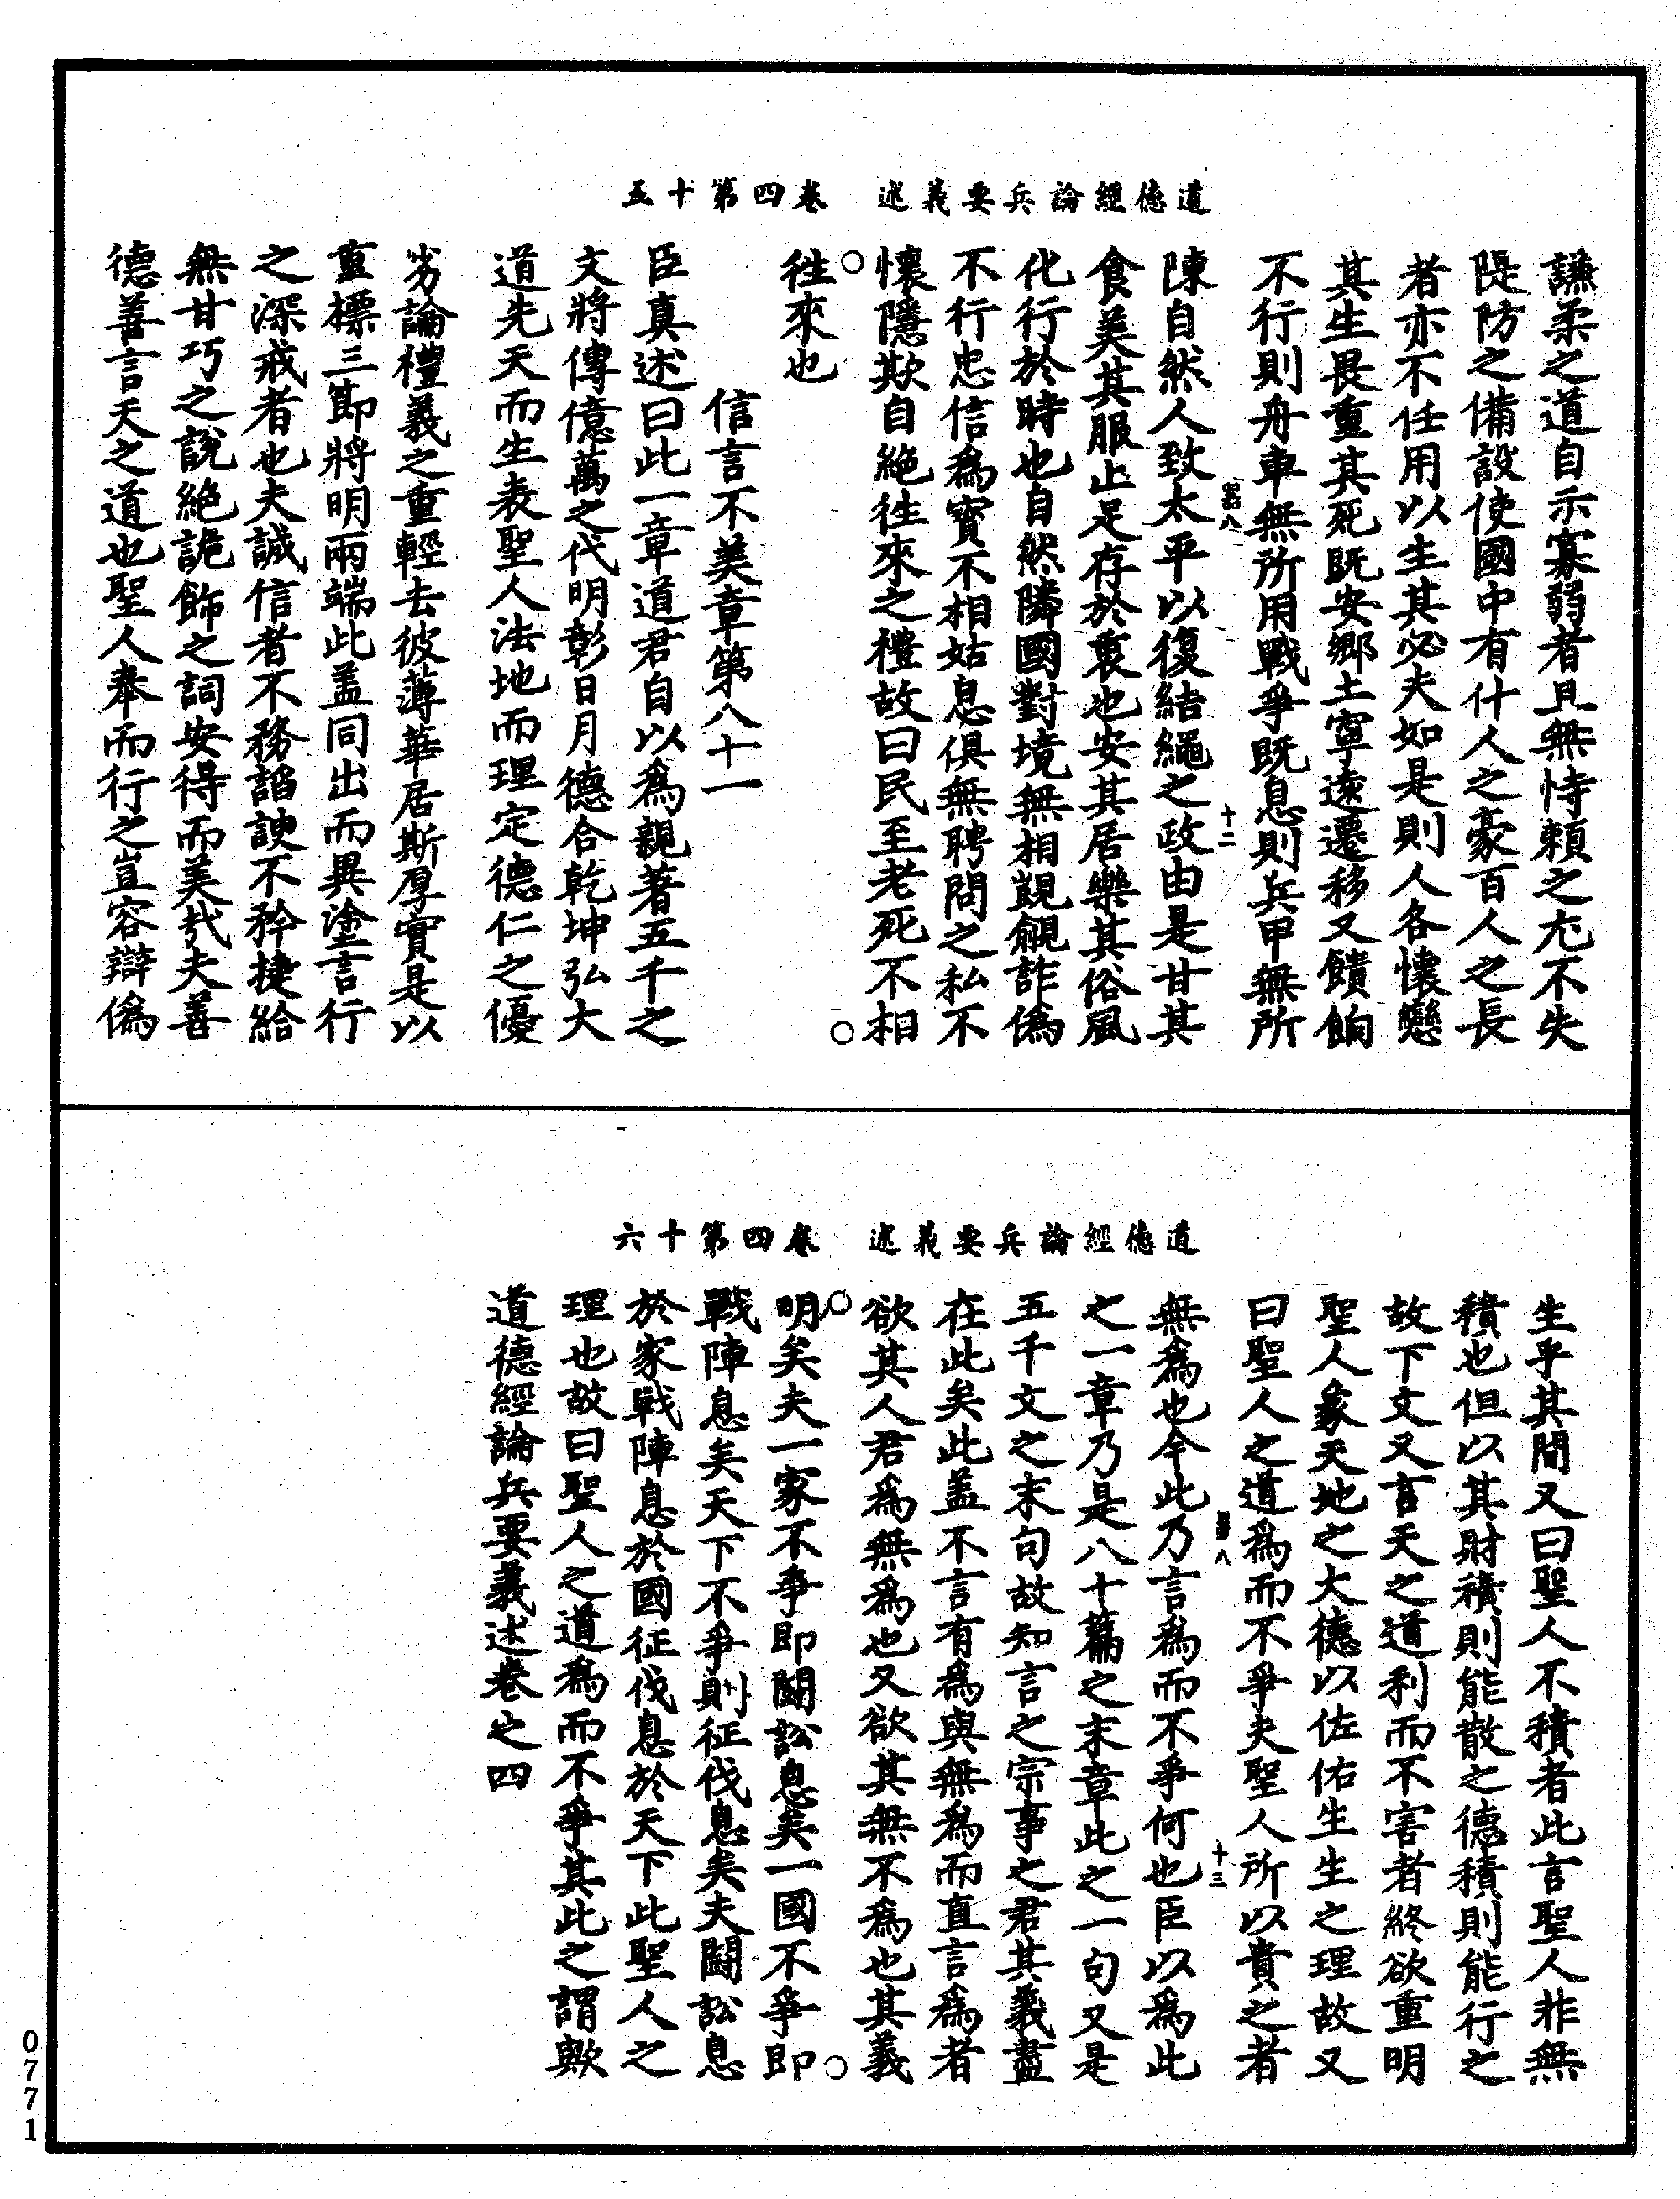 道德經論兵要義述　卷四第十五
謙柔之道自示寡弱者且無恃賴之尤不失
隄防之備設使國中有什人之豪百人之長
者亦不任用以生其必夫如是則人各懷戀
其生畏重其死既安鄉土寧遠遷移又饋餉
不行則舟車無所用戰爭既息則兵甲無所
十二
陳自然人致太平以復結繩之政由是甘其
食美其服止足存於衷也安其居樂其俗風
化行於時也自然隣國對境無相覬覦詐偽
不行忠信為寶不相姑息俱無聘問之私不
懷隱欺自絶徃來之禮故曰民至老死不相
徃來也
信言不美章第八十一
臣真述曰此一章道君自以為親著五千之
文將傳億萬之代明彰日月德合乾坤弘大
道先天而生表聖人法地而理定德仁之優
劣論禮義之重輕去彼薄華居斯厚實是以
重標三節將明兩端此盖同出而異塗言行
之深戒者也夫誠信者不務諂諛不矜捷給
無甘巧之說絶詭飾之詞安得而美哉夫善
德善言天之道也聖人奉而行之豈容辯偽
道德經論兵要義述　卷四第十六
生乎其間又曰聖人不積者此言聖人非無
積也但以其財積則能散之德積則能行之
故下文又言天之道利而不害者終欲重明
聖人彖天地之大德以佐佑生生之理故又
曰聖人之道為而不爭夫聖人所以貴之者
十三
無為也今此乃言為而不爭何也臣以為此
之一章乃是八十篇之末章此之一句又是
五千文之末句故知言之宗事之君其義盡
在此矣此盖不言有為與無為而直言為者
欲其人君為無為也又欲其無不為也其義
明矣夫一家不爭即鬪訟息矣一國不爭即
戰陣息矣天下不爭則征伐息矣夫鬪訟息
於家戰陣息於國征伐息於天下此聖人之
理也故曰聖人之道為而不爭其此之謂歟
道德經論兵要義述卷之四
0771